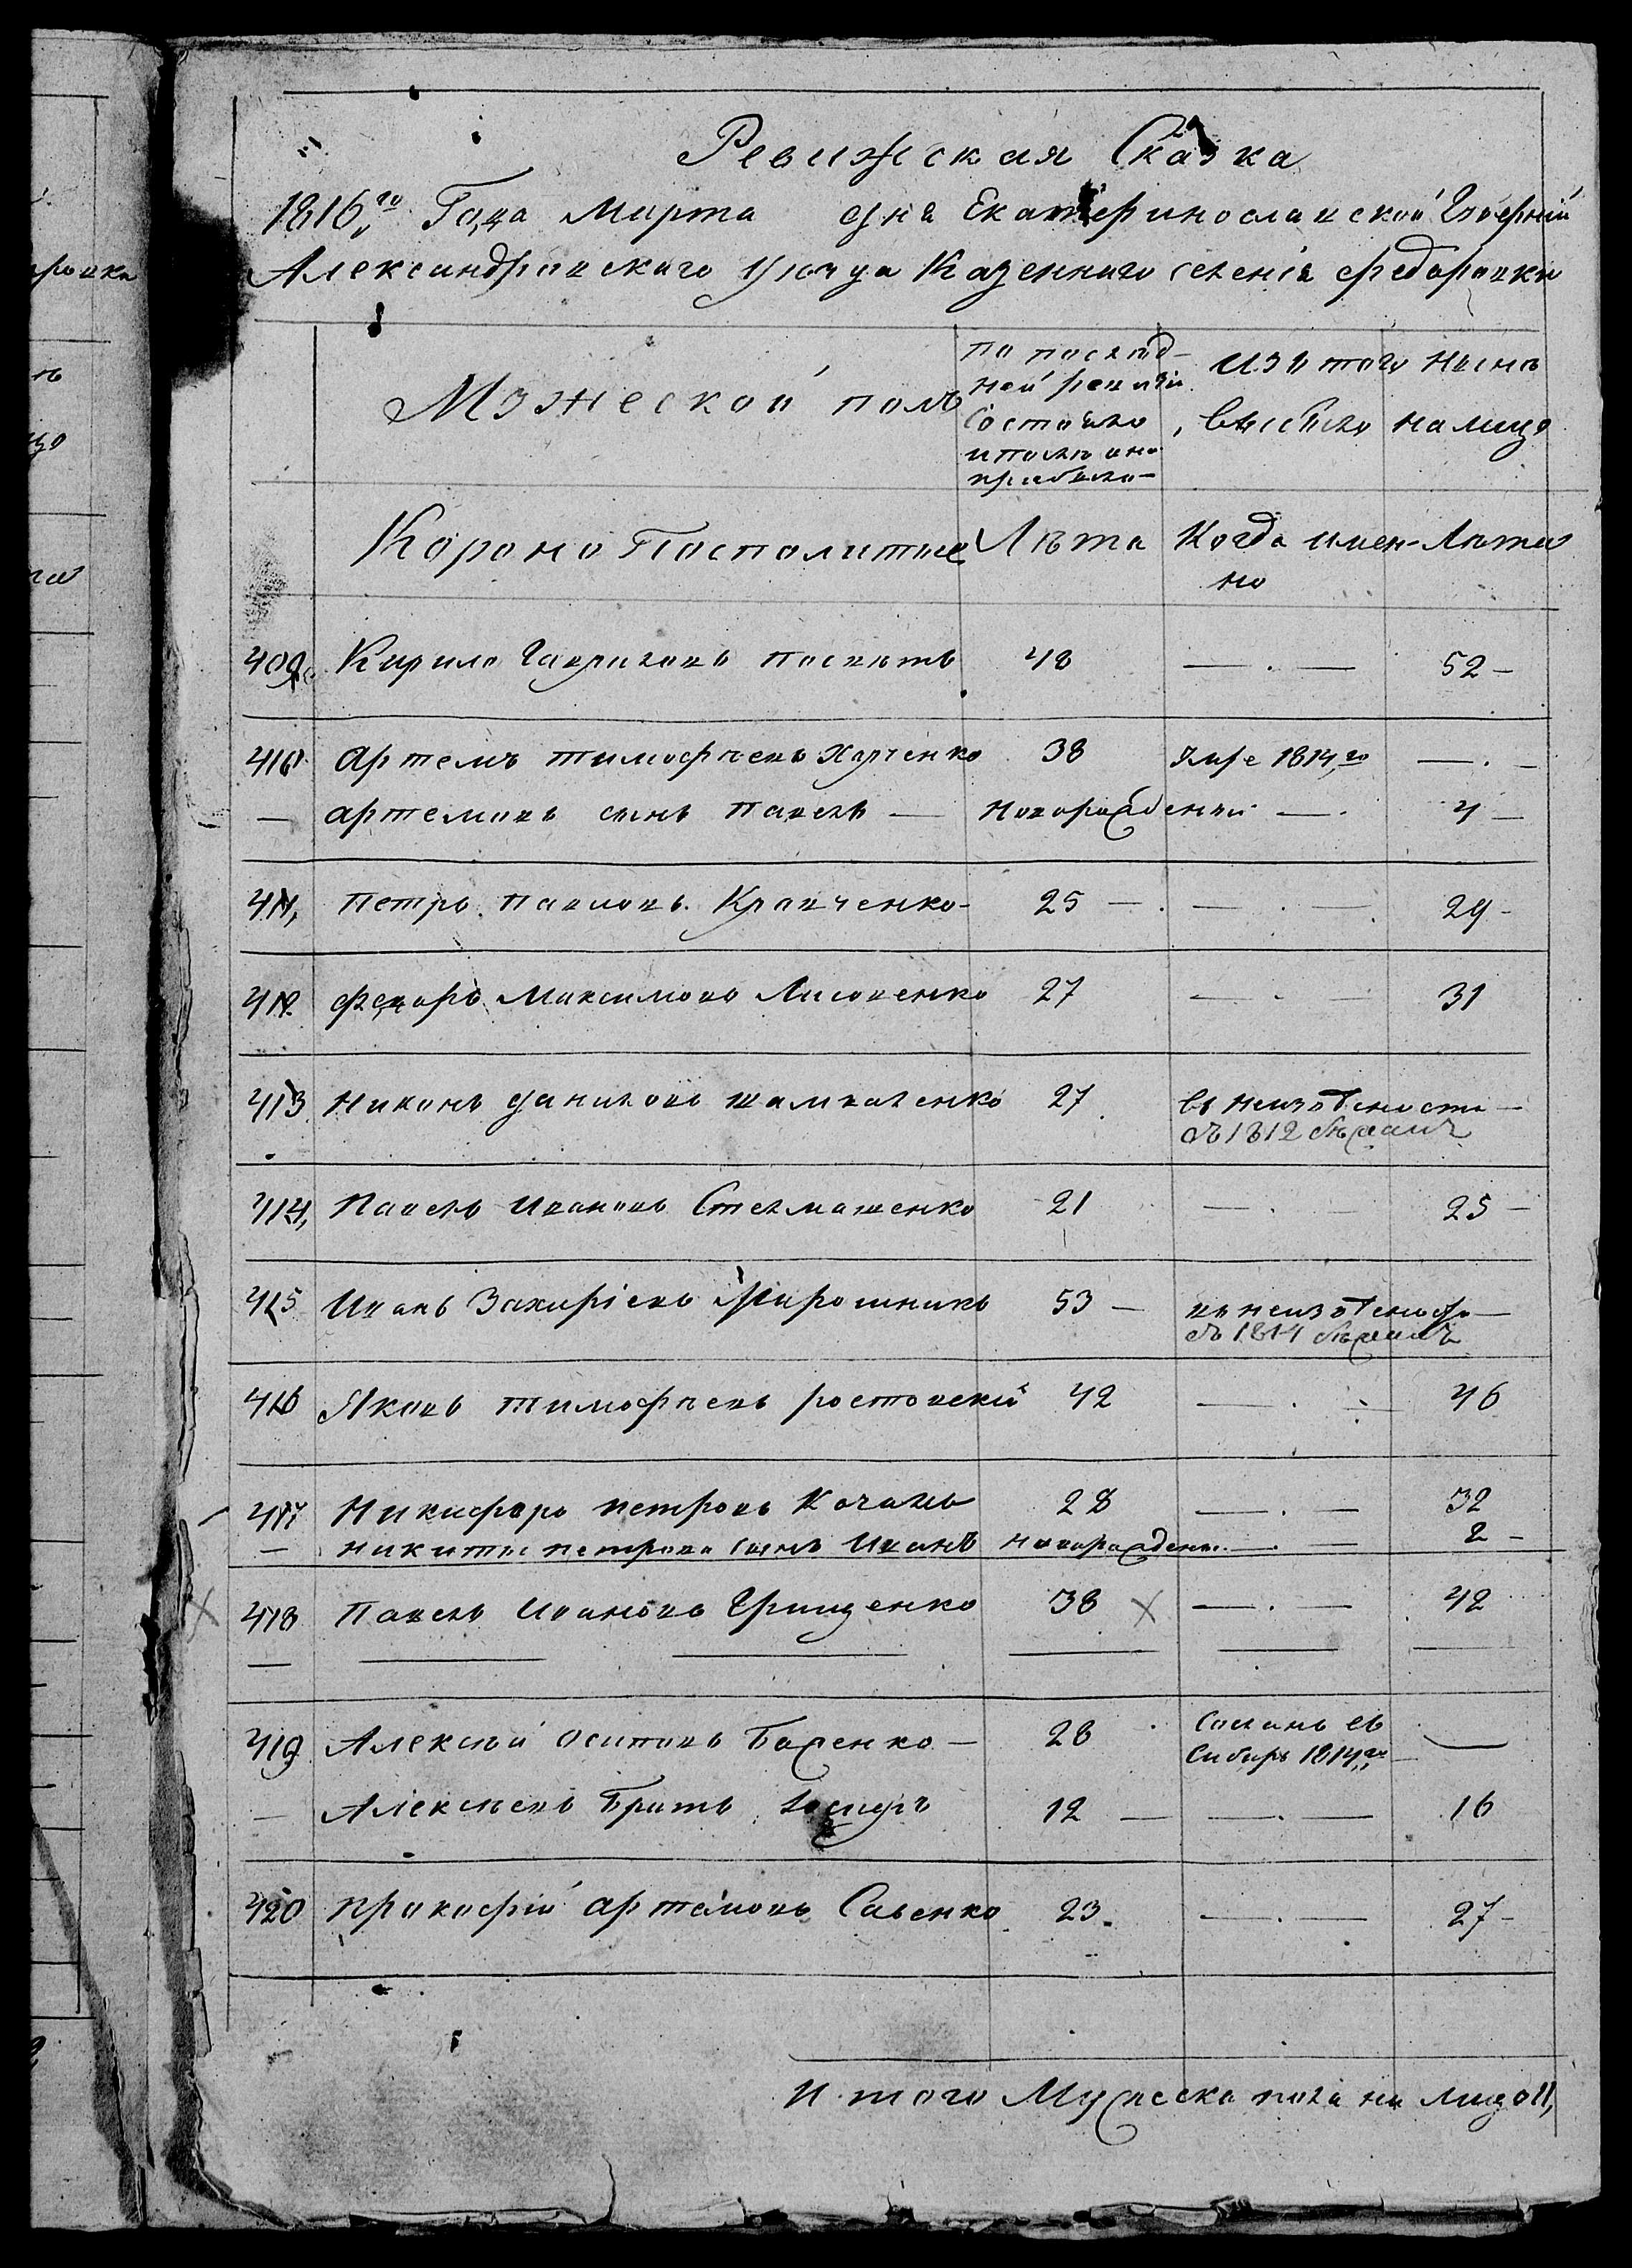 Ревижская Сказка
1816го Года Марта дня Екатеринославской Губернии
Александровского уезда Казенного селения Федоровки
Мужеской полъ
По послед-
ней ревизіи
Состояло
и после оно
прибыло
Изъ того
выбыло
Ныне
на лицо
Короно Посполитые
Лѣта
Когда имен-
но
Лѣта
409 Кирило Гавриловъ 48 — . — 52 –
410 Артемъ Тимофѣевъ Харченко 38 Умре 1814го — . –
— Артемовъ сынъ Павелъ — Новорожденый — . 4 –
411, Петръ Павловъ Кравченко – 25 — . — . — 29 –
412 Федоръ Максимовъ Лисовенко 27 — . — 31
413 Никонъ Даниловъ 27 въ неизвестности —
съ 1812 бежалъ
414, Павелъ Ивановъ Стелмашенко 21 — . — 25 –
415 Иванъ Захаріевъ Мирошникъ 53 – въ неизвестности —
съ 1814 бежалъ
416 Яковъ Тимофѣевъ Ростовскій 42 — . — 46
417 Никифоръ Петровъ Качанъ 28 — . — 32
— Никиты Петрова Сынъ Иванъ Новорожденъ — . — 2 –
418 Павелъ Ивановъ Грищенко 38 × — . — 42
419 Алексѣй Осиповъ Баженко – 28 Сосланъ въ
Сибирь 1814го —
— Алексѣевъ Братъ 12 — . — 16
420 Прокофій Артемовъ Савенко 23 . — . — 27 –
Итого Мужеска пола на лицо 11,